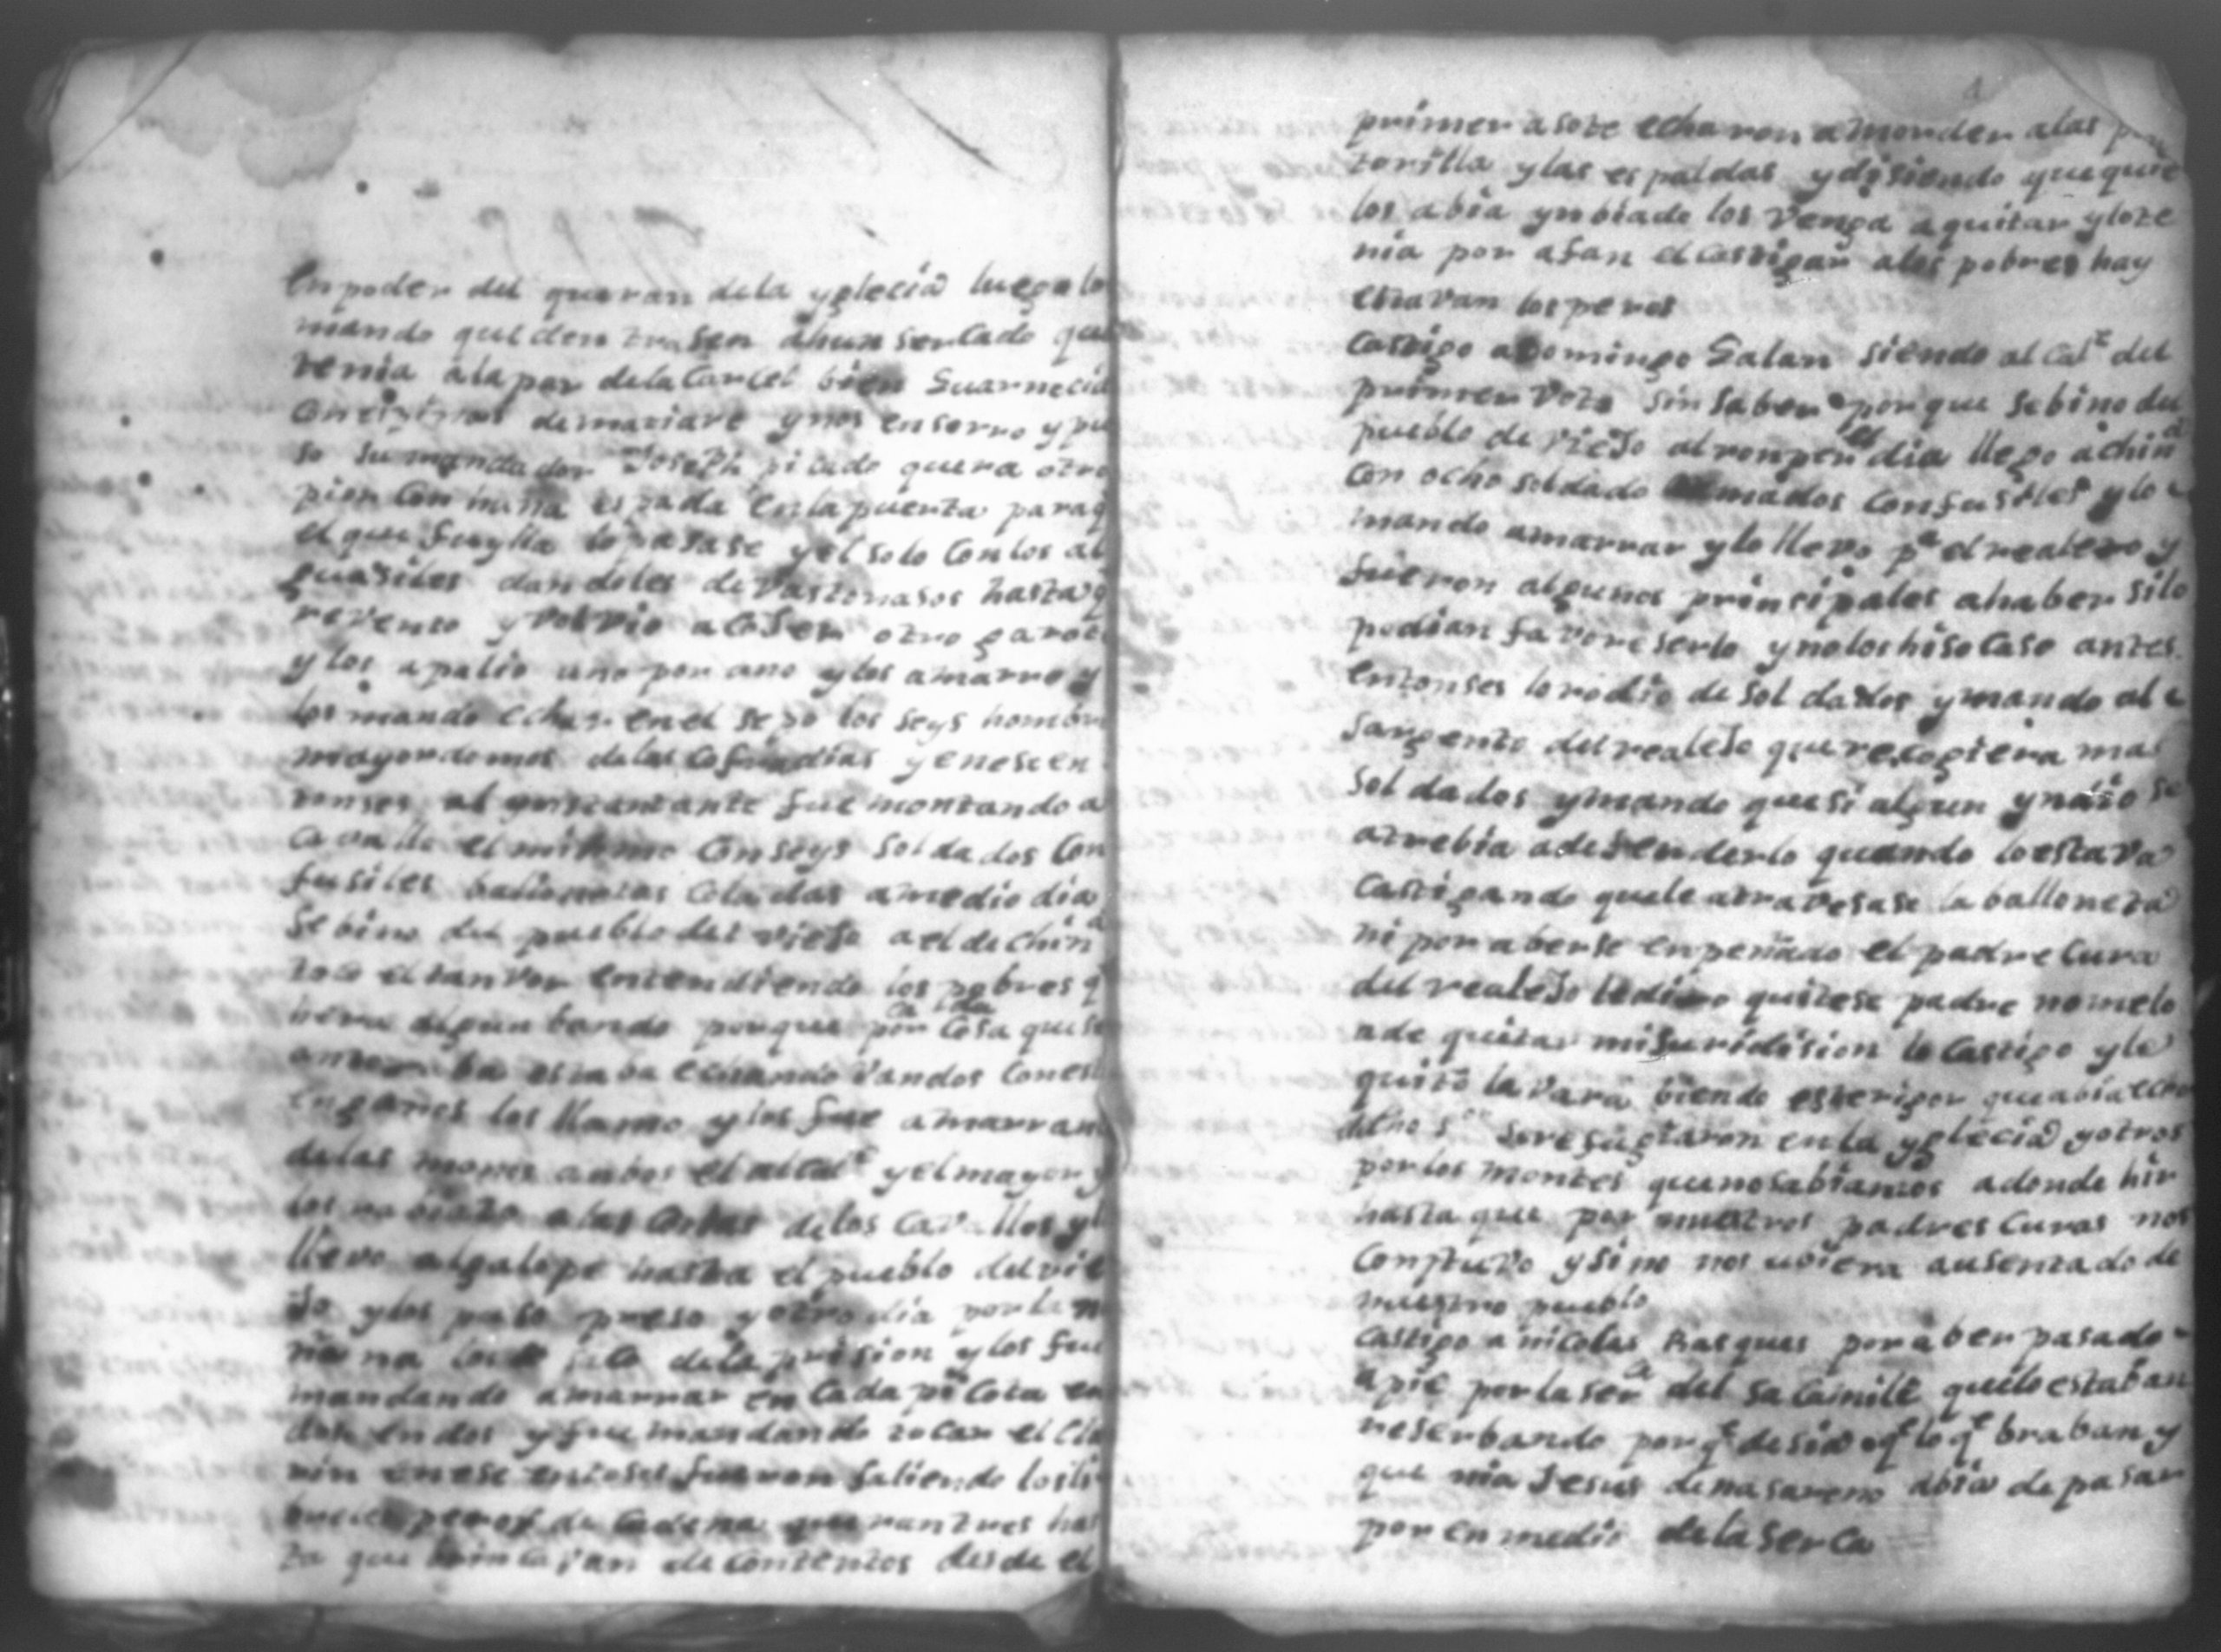 En poder del queran dela yglecia luego lo
mando que den trasen ahun sercado que
tenia ala par dela Carcel bien Guarnecid
Con demaziare y nos enserro y pu
so su mandador Joseph picado quera otro
pion Con una espada enla puerta paraq
el que fuylla lo pasase y el solo Con los al
guasiles dandoles de vastonasos hasta q
revento y volvio acoser otro garrot
y los apalio uno por uno y los amarro y
los mando echar en el sepo los seys hombr
mayordomos delas Cofradias y enesen
tonses al ynstantante fue montando a
Cavallo el mismo Con seys Soldados Con
fusiles ballonetas Caladas a medio dia
Se bino del pueblo del viejo a el de Chin^a
toco el tanvor entendiendo los pobres q
hera algun bando porque por ca da Cosa que se
estaba echando vandos Con est
engaños los llamo y los fue amarran
delas manos ambos el alcal^e y el mayor y
los a las Colas delos Cavallos y l
llevo al galope hasta el pueblo del vie
Jo y los puso preso y otro dia por la m
ñana los saco dela prision y los fue
mandando amarrar en Cada picota en
dos en dos y fue mandando tocar el Cla
rin en ese entoses fueron saliendo los li
breles peros de Cadena que rantres has
ta que brincavan de Contentos desde el
primer asote echaron a morder alas pan
torilla y las espaldas y disiendo que quie
los abia ynbiado los venga a quitar y lo te
nia por afan el castigar alos pobres hay
estavan los peros
Castigo a Domingo Galan siendo al Cal^e del
primer Voto sin saber porque se bino del
pueblo de vieJo al ronper el dia llego a chin^a
Con ocho soldado armados Con fusiles y lo
mando amarrar y lo llevo p^a el realexo y
fueron algunos principales ahaber silo
podian favoreserlo y nolos hiso Caso antes
entonses lo rodio de Sol dados y mando al
sargento del realeJo que recogiera mas
Sol dados y mando que si algun yndio se
atrebia a defenderlo quando lo estava
Castigando que le atravesase la balloneta
ni por aberse enpeñado el padre Cura
del realeJo le dixo quitese padre no me lo
ade quitar mi Juridision lo Castigo y le
quito la vara biendo este rigor que abia echo
dicho s^or se refugiaron en la yglecia y otros
por los montes que no sabiamos a donde hir
hasta que por nuestros padres Curas nos
Contuvo y si no nos ubiera ausentado de
nuestro pueblo
Castigo a nicolas Basques por aber pasado
a pie por la ser^ca del sacamile que lo estaban
reserbando por q^e desia q^e lo q^e braban y
que nia Jesus de nasareno abia de pasar
por en medio dela Serca